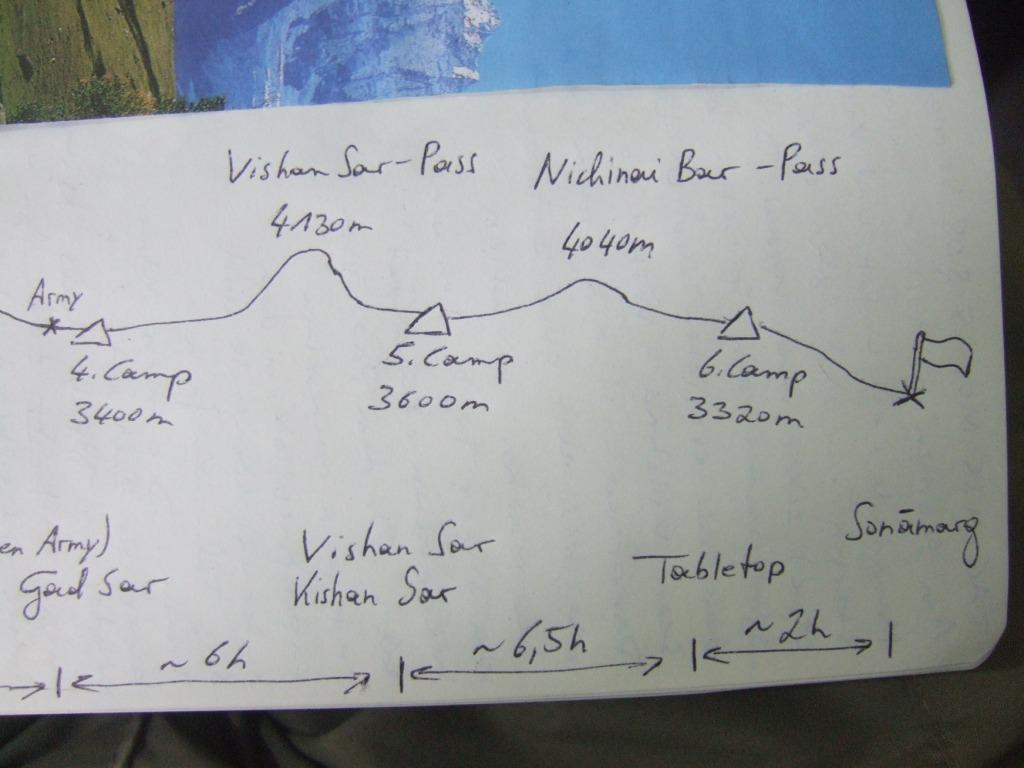 Vishan Sar-Pass
4130m
Nichinai Bar-Pass
4040m
Army
4. Camp
3400m
5. Camp
3600m
6. Camp
3320m
en Army)
Gad Sar
Vishan Sar
Kishan Sar
Tabletop
Sonāmarg
~ 6h
~ 6,5h
~ 2h